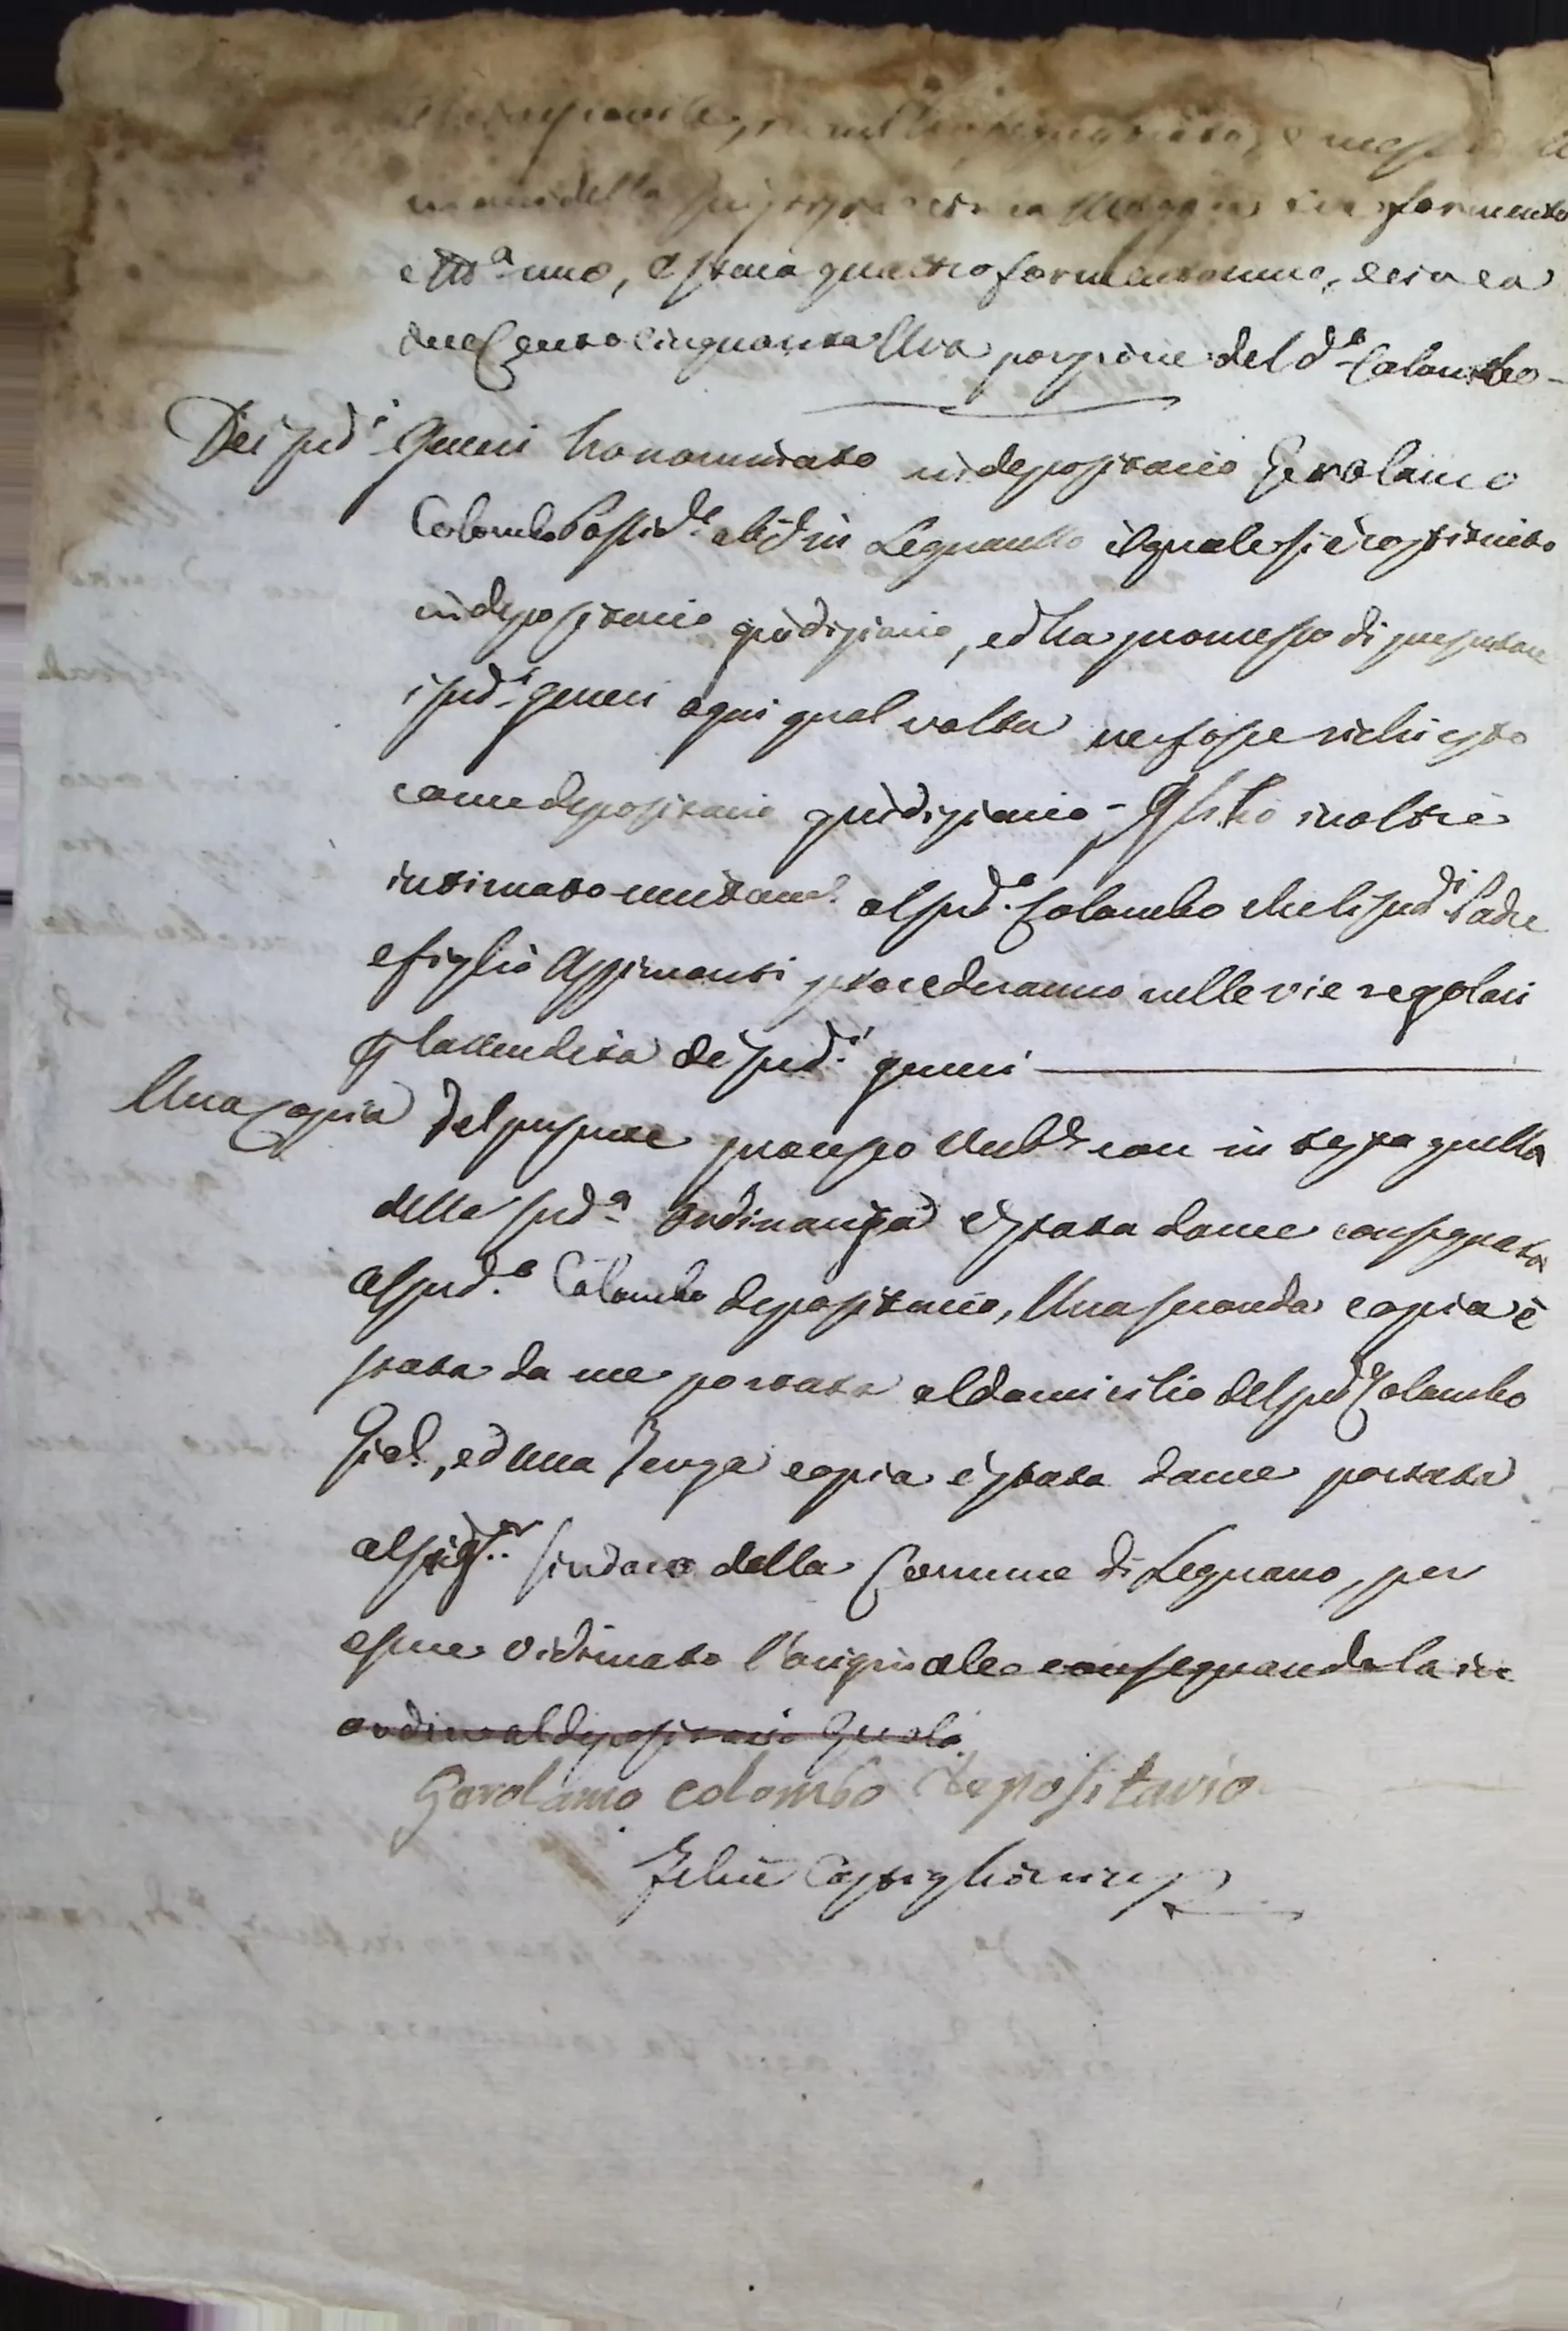 formento
e uno, e staia quattro formentone, e circa
due Cento Cinquanta Uva porzione del d.o Colombo -
Dei sud.i Generi ho nominato in depositario Gerolamo
Colombo Possid.e abit. in Legnanello il quale si è costituito
in depositario giudiziario, ed ha promesso di presentare
i sud.i generi ogni qual volta ne fosse richiesto
come depositario giudiziario - Gli ho inoltre
intimato unitam.e al sud.o Colombo che li sud.i Padre
e figlio Assimonti procederanno nelle vie regolari
p la vendita de sud.i generi
Una Copia del presente processo Verb.le con in testa quella
della sud.a Ordinanza è stata da me consegnata
al sud.o Colombo depositario, Una seconda copia è
stata da me portata al domicilio del sud.o Colombo
ed una Terza copia è stata da me portata
al sig.r Sindaco della Comune di Legnano, per
essere vidimato l'originale consegnandola in
ordine al depositario
Gerolamo colombo depositario
Felice Castiglioni